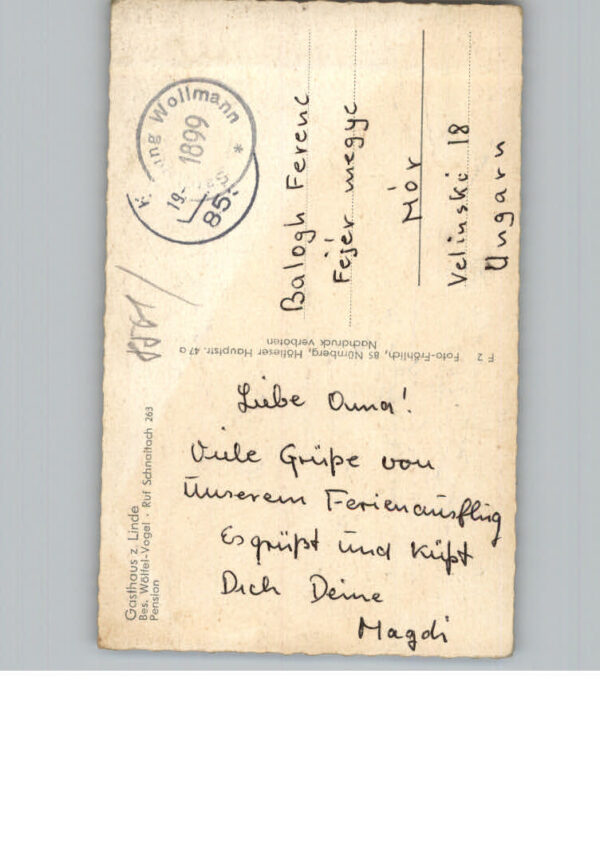 Gasthaus z. Linde
Bes. Wölfel-Vogel · Ruf Schnaittach 263
Pension
Liebe Oma!
Viele Grüße von
Unserem Ferienausflug
Es grüßt und küßt
Dich Deine
Magdi
F 2 Foto-Fröhlich, 85 Nürnberg, Höfleser Hauptstr. 47 a
Nachdruck verboten
Wollmann
1899
*
19
85
Balogh Ferenc
Fejér megye
Mór
Velinski 18
Ungarn